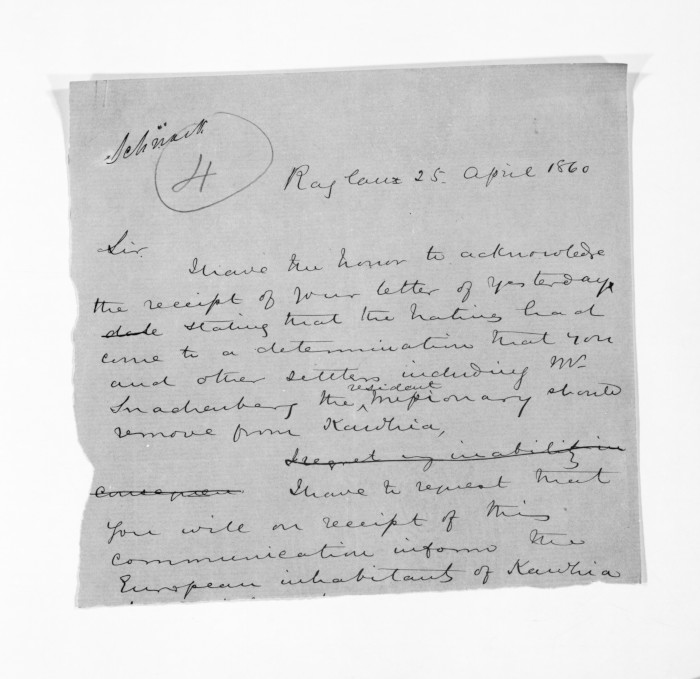 Schnack
4
Raglan 25. April 1860
Sir.
I have the honor to acknowledge
the receipt of your letter of yesterdays
date stating that the natives had
come to a determination that you
and other settlers including Mr
resident
Snachenberg the Missionary should
remove from Kawhia,
I regret my inability in
consequen I have to request that
you will on receipt of this
communication inform the
European inhabitants of Kawhia